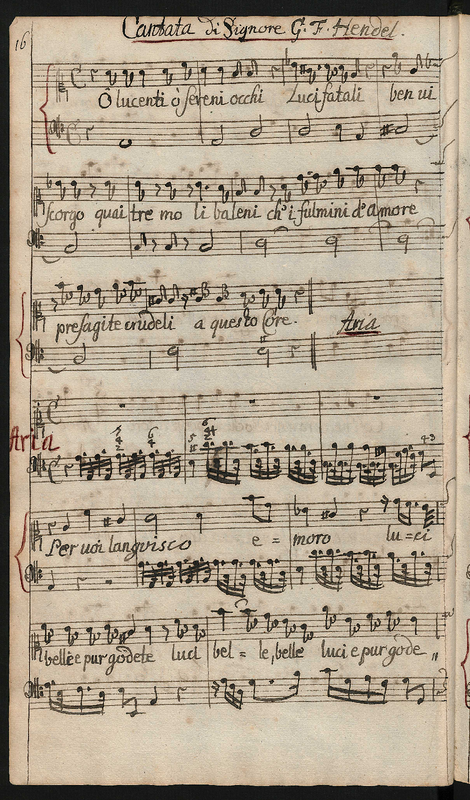 Cantata di Signore G. F. Hendel.
16
O lucenti ò sereni occhi Luci fatali ben vi
scorgo quai tre mo li baleni ch'i fulmini d'amore
presagite crudeli a questo Core. Aria
Aria
Per voi languisco e = moro lu = ci
belle e pur godete luci bel = le, belle luci e pur gode "